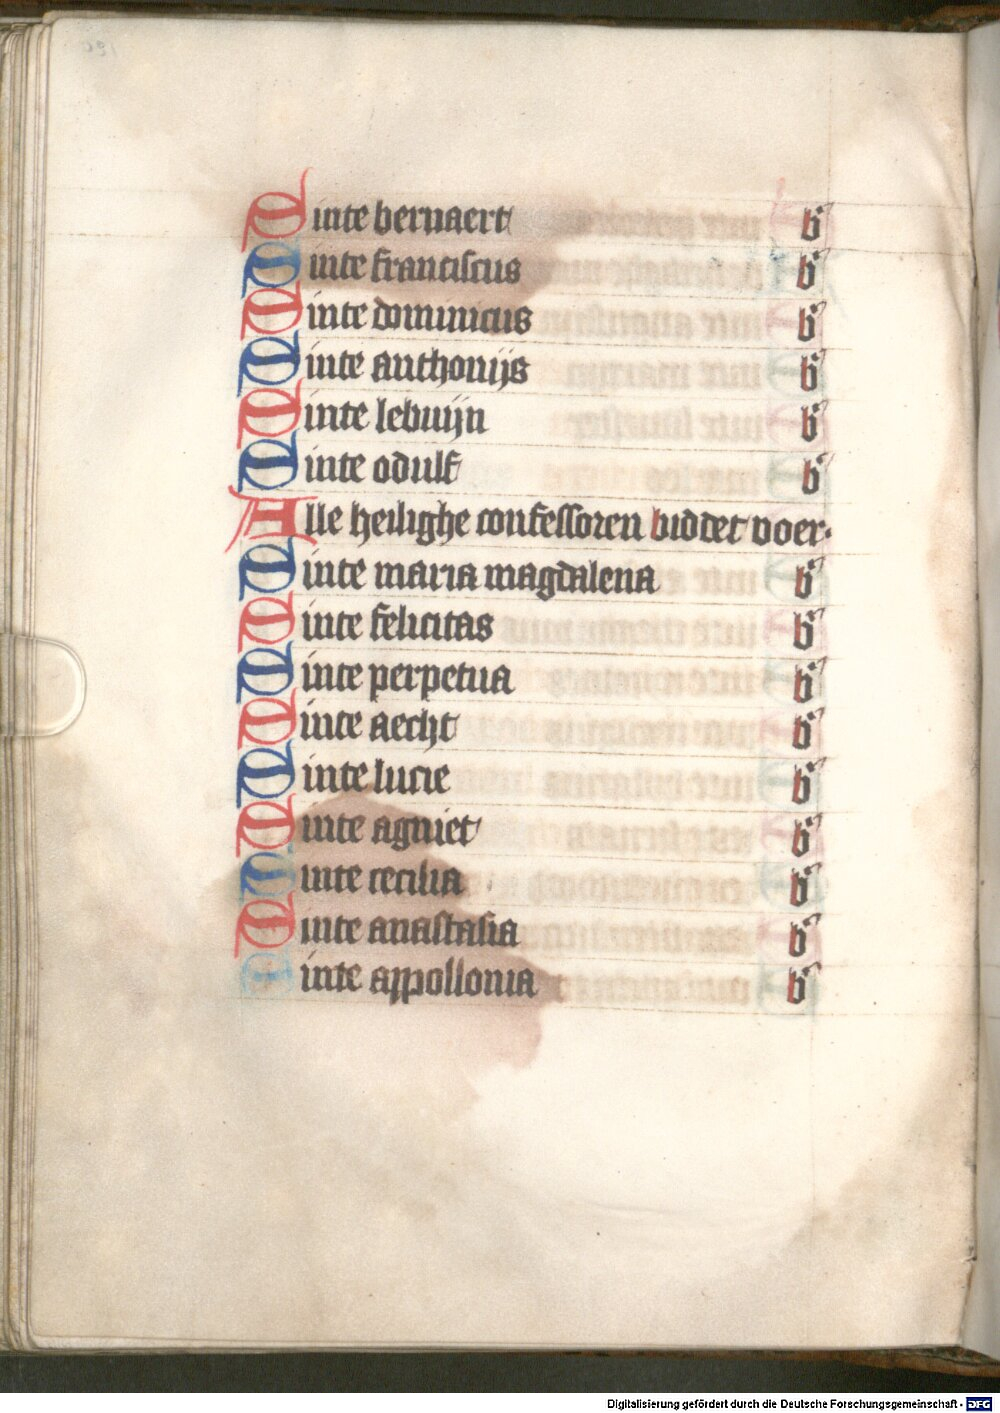 Sinte bernaert b
Sinte franciscus b
Sinte dominicus b
Sinte anthonijs b
Sinte lebuijn b
Sinte odulf b
Alle heilighe confessoren biddet voer
Sinte maria magdalena b
Sinte felicitas b
Sinte perpetua b
Sinte aecht b
Sinte lucie b
Sinte agniet b
Sinte cecilia b
Sinte anastasia b
Sinte appollonia b
Digitalisierung gefördert durch die Deutsche Forschungsgemeinschaft - DFG